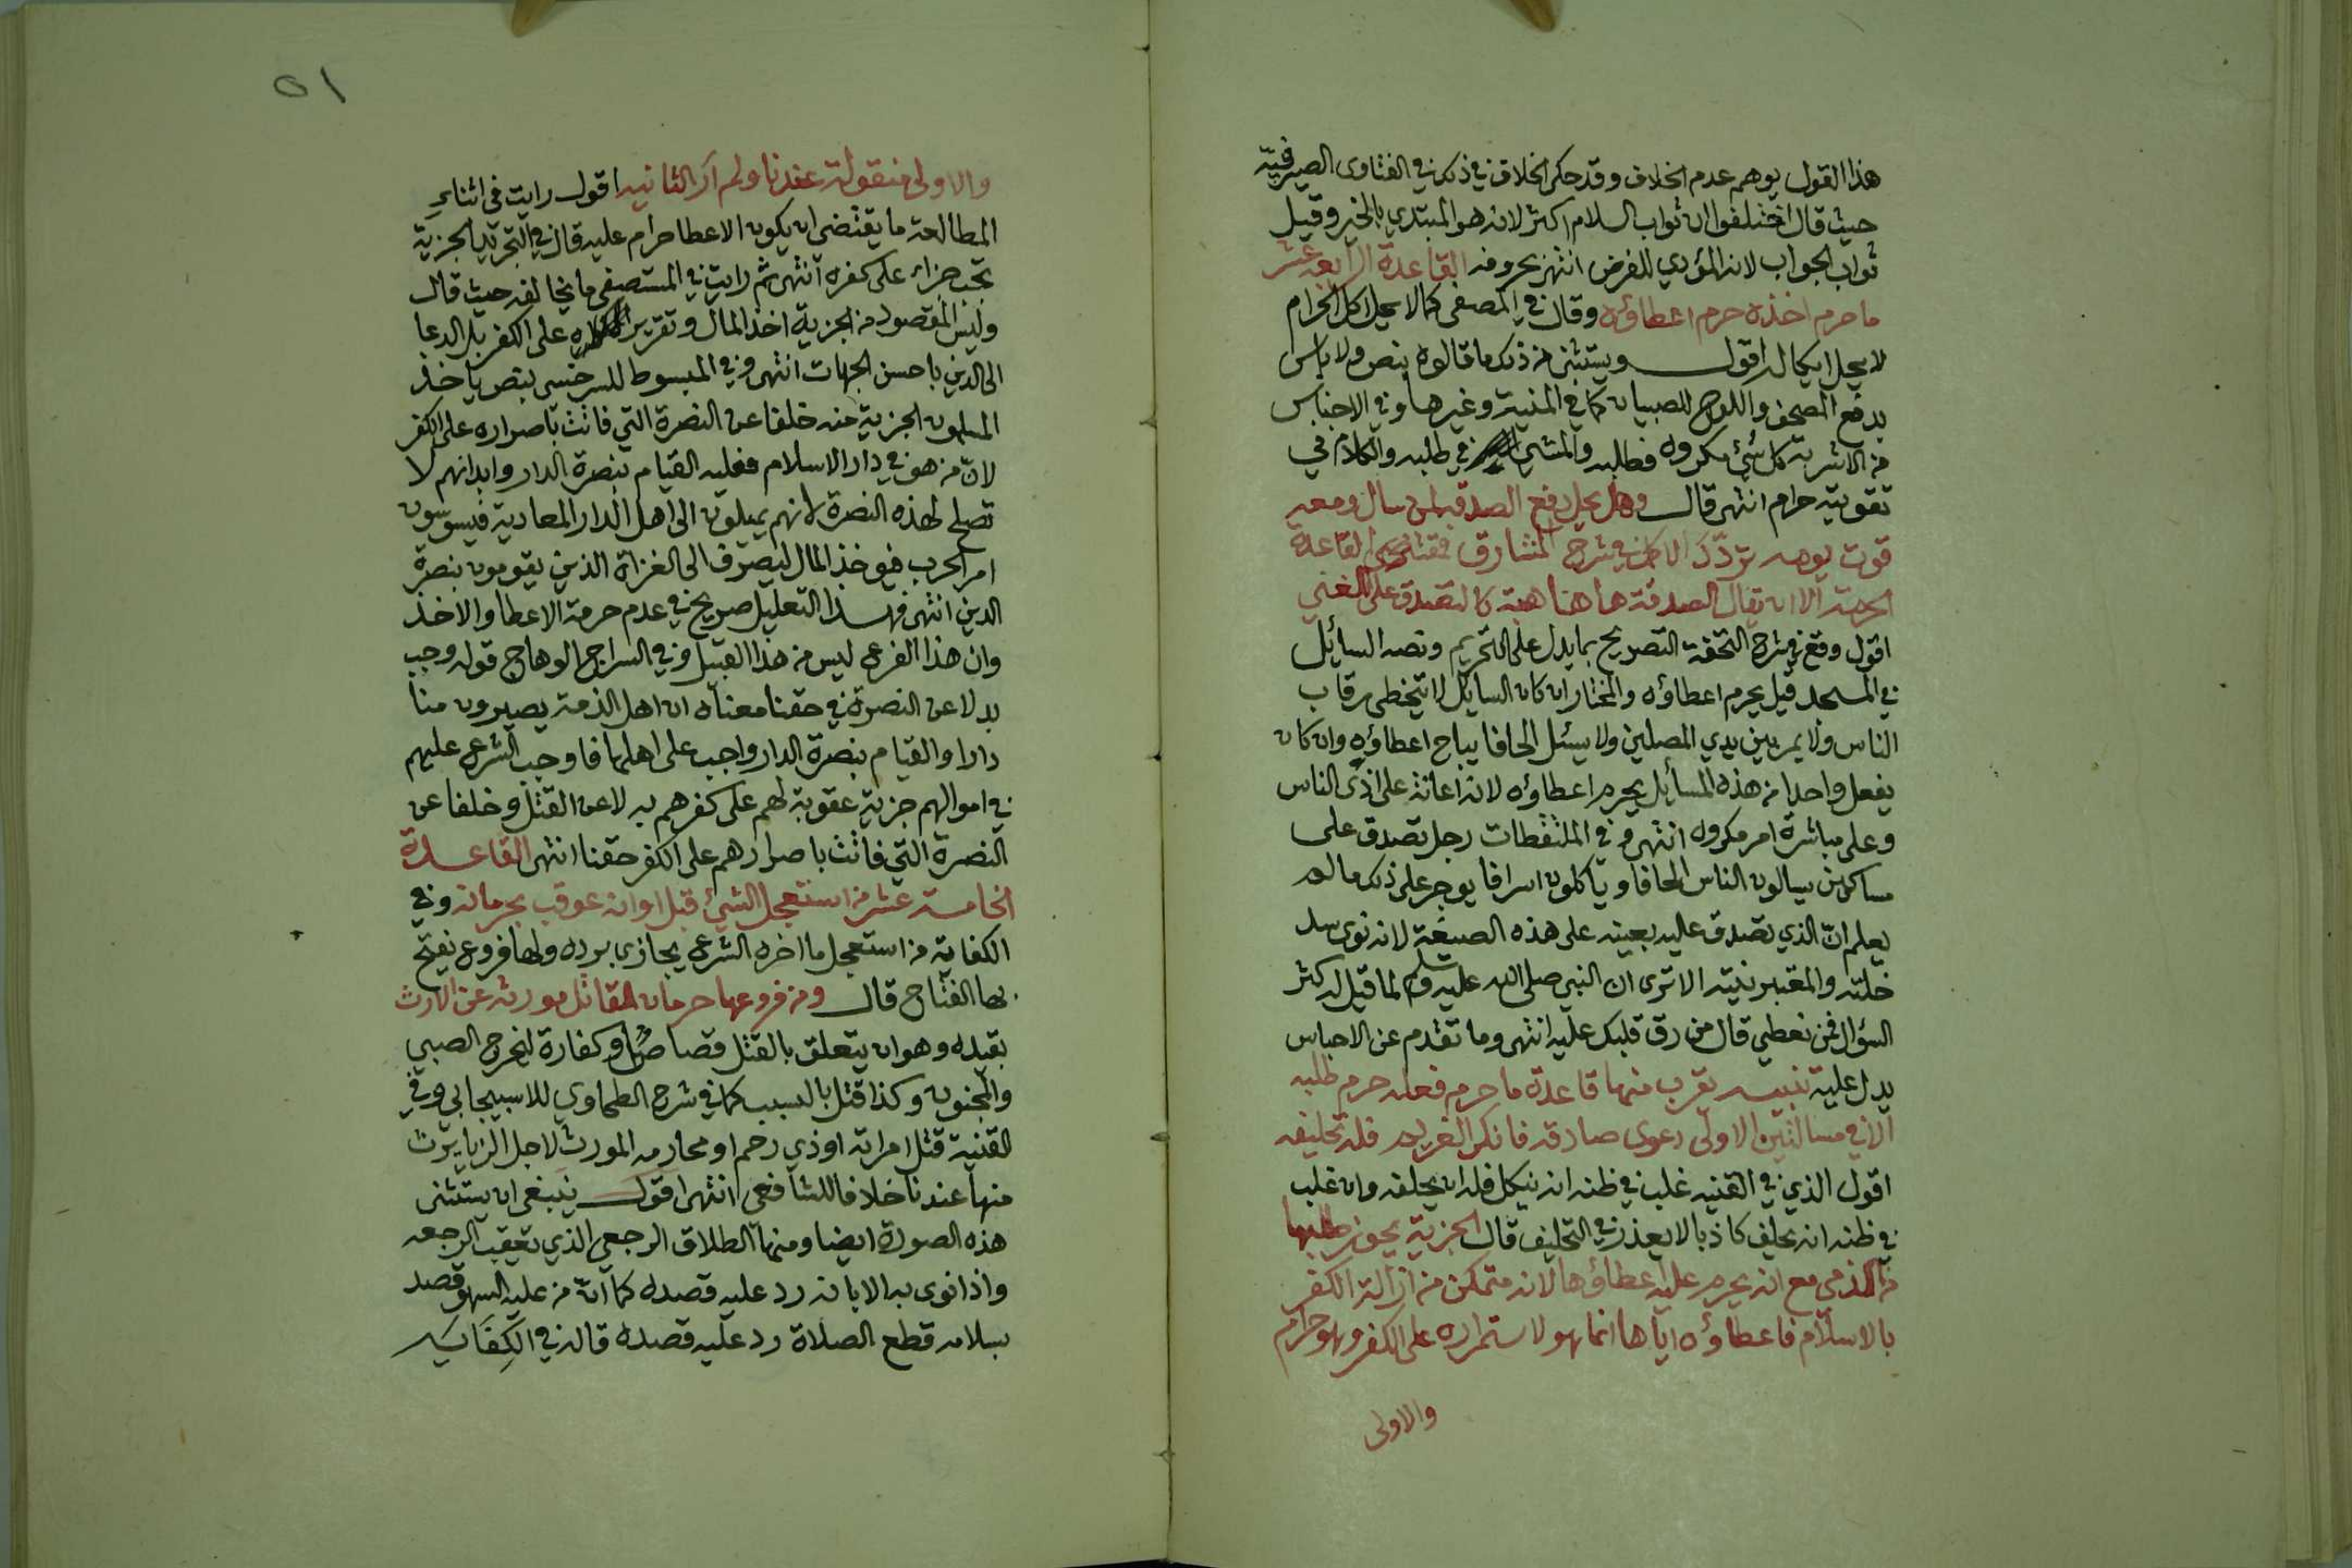 هذا القول يوهم عدم الخلاف وقد حكى الخلاف في ذكره في الفتاوى الصيرفية
حيث قال اختلفوا ان ثواب السلام اكثر لانه هو المبتدي بالخير وقيل
ثواب الجواب لانه المؤدي للفرض انتهى بحروفه القاعدة الرابعة عشر
ما حرم اخذه حرم اعطاؤه وقال في المصفى كما لا يحل اكل الحرام
لا يحل ايكاله اقول ويستثنى من ذلك ما قالوه بنص ولا باس
بدفع المصحف واللوح للصبيان كما في المنية وغيرها وفي الاجناس
من الاشربة كل شيء مكروه فطلبه والمشي في طلبه والكلام في
تقويته حرام انتهى قال وهل يحل دفع الصدقة لمن سال ومعه
قوت يومه تردد الاكمل في شرح المشارق فمقتضى القاعدة
الحرمة الا ان يقال الصدقة هاهنا هبة كالتصدق على الغني
اقول وقع في شرح التحفة التصريح بما يدل على التحريم ونصه السائل
في المسجد قيل يحرم اعطاؤه والمختار ان كان السايل لا يتخطى رقاب
الناس ولا يمر بين يدي المصلين ولا يسئل الحافا يباح اعطاؤه وان كان
يفعل واحدا من هذه المسائل يحرم اعطاؤه لانه اعانة على اذى الناس
وعلى مباشرة امر مكروه انتهى وفي الملتقطات رجل تصدق على
مساكين يسالون الناس الحافا وياكلون اسرافا يوجر على ذلك ما لم
يعلم ان الذي تصدق عليه بعينه على هذه الصيغة لانه نوى سد
خلته والمعتبر نيته الا ترى ان النبي صلى الله عليه وسلم لما قيل له كثر
السؤال فمن نعطي قال من رق قلبك عليه انتهى وما تقدم عن الاجناس
يدل عليه تنبيه تقرب منها قاعدة ما حرم فعله حرم طلبه
الا في مسالتين الاولى دعوى صادقة فانكر الغريم فله تحليفه
اقول الذي في القنية غلب في ظنه انه ينكل فله ان يحلفه وان غلب
في ظنه انه يحلف كاذبا لا يعذر في التحليف قال الجزية يجوز طلبها
من الذمي مع انه يحرم عليه اعطاؤها لانه متمكن من ازالة الكفر
بالاسلام فاعطاؤه اياها انما هو لاستمراره على الكفر وهو حرام
والاولى
٥١
والاولى منقولة عندنا ولم ار الثانية اقول رايت في اثناء
المطالعة ما يقتضي ان يكون الاعطا حرام عليه قال في التجريد الجزية
تجب جزاء على كفره انتهى ثم رايت في المستصفى ما يخالفه حيث قال
وليس المقصود من الجزية اخذ المال وتقرير على الكفر بل الدعا
الى الدين باحسن الجهات انتهى وفي المبسوط للسرخسي بنص ياخذ
المسلمون الجزية منه خلفا عن النصرة التي فاتت باصراره على الكفر
لان من هو في دار الاسلام فعليه القيام بنصرة الدار وابدانهم لا
تصلح لهذه النصرة لانهم يميلون الى اهل الدار المعادية فيسوسون
امر الحرب فيوخذ المال ليصرف الى الغزاة الذين يقومون بنصرة
الدين انتهى فهذا التعليل صريح في عدم حرمة الاعطا والاخذ
وان هذا الفرع ليس من هذا القبيل وفي السراج الوهاج قوله وجب
بدلا عن النصرة في حقنا معناه ان اهل الذمة يصيرون منا
دارا والقيام بنصرة الدار واجب على اهلها فاوجب الشرع عليهم
في اموالهم جزية عقوبة لهم على كفرهم بدلا عن القتل وخلفا عن
النصرة التي فاتت باصرارهم على الكفر حقنا انتهى القاعدة
الخامسة عشر من استعجل الشيء قبل اوانه عوقب بحرمانه وفي
الكفاية من استعجل ما اخره الشرع يجازى برده ولها فروع نفتح
بها الفتاح قال ومن فروعها حرمان القاتل مورثه عن الارث
بقيده وهو ان يتعلق بالقتل قصاص او كفارة ليخرج الصبي
والمجنون وكذا قتل بالسبب كما في شرح الطحاوي للاسبيجابي وفي
القنية قتل امراته او ذي رحم او محارمه المورث لاجل الزنا يرث
منها عندنا خلافا للشافعي انتهى اقول ينبغي ان يستثنى
هذه الصورة ايضا ومنها الطلاق الرجعي الذي تعقب الرجعه
واذا نوى به الابانة رد عليه قصده كما انه من عليه السهو قصد
بسلامه قطع الصلاة رد عليه قصده قاله في الكفاية